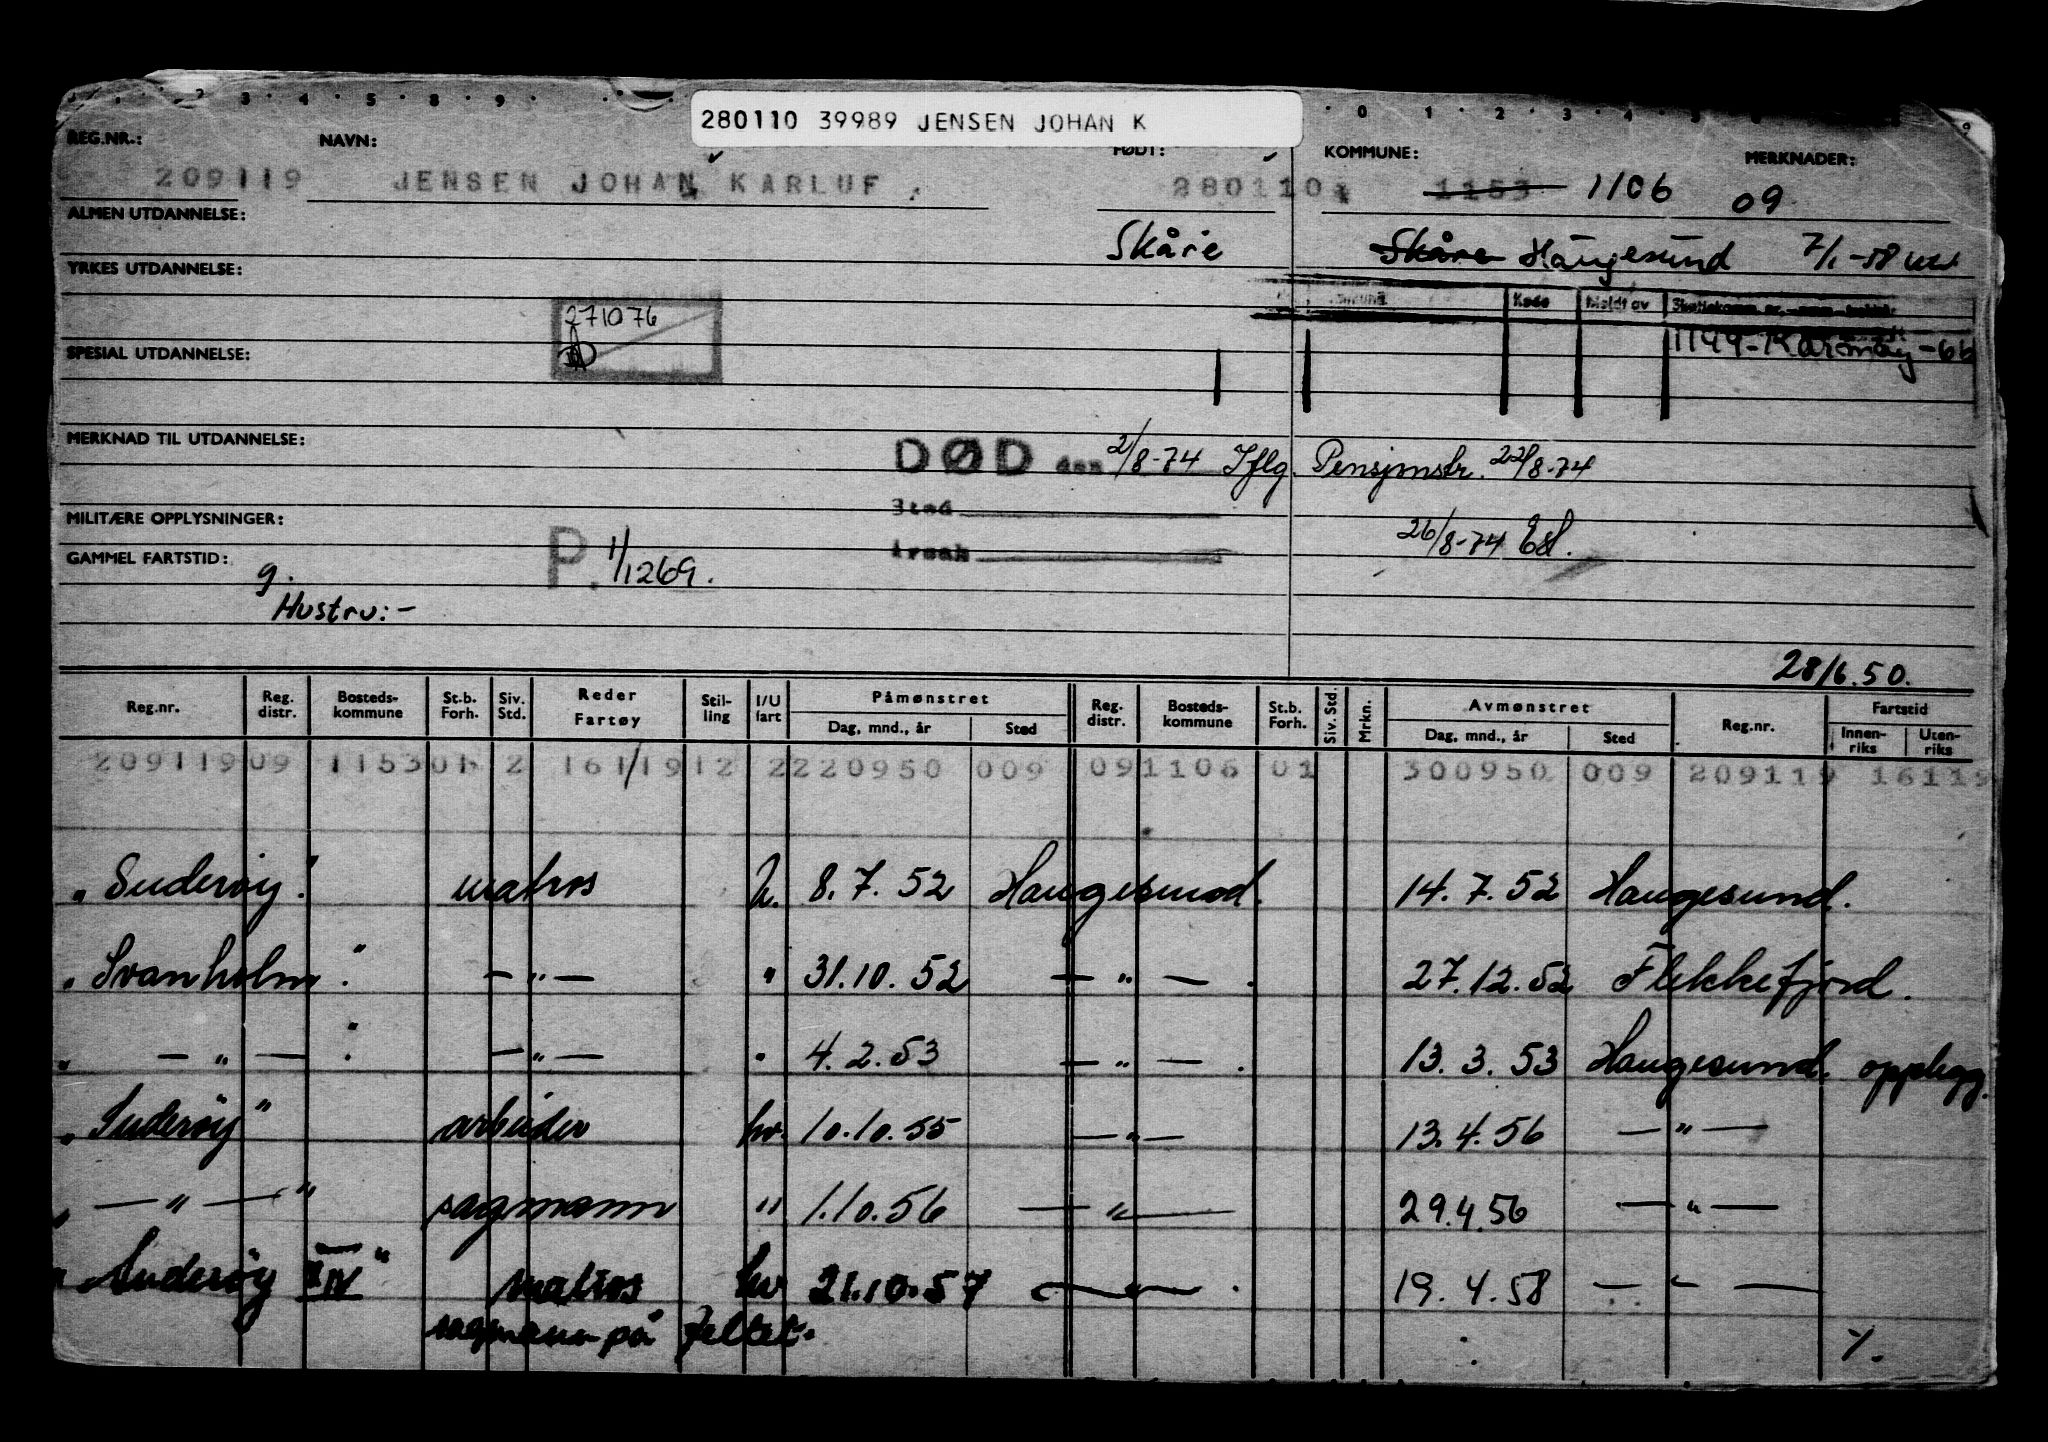 280110 39989 JENSEN JOHAN K
REG.NR.: NAVN: FØDT: KOMMUNE: MERKNADER:
209119 JENSEN JOHAN KARLUF 280110 1153 1106 09
ALMEN UTDANNELSE:
Skåre Skåre Haugesund 7/1-58
YRKES UTDANNELSE:
Kode Meldt av
271076
1149-Karmøy-66
SPESIAL UTDANNELSE:
MERKNAD TIL UTDANNELSE:
DØD den 2/8-74 Iflg. Pensjonstr. 22/8-74
Sted
MILITÆRE OPPLYSNINGER:
26/8-74
Årsak
GAMMEL FARTSTID: g. P. 1/1269.
Hustru:-
28/6.50.
Reg.nr. Reg. distr. Bosteds-kommune St.b. Forh. Siv. Std. Reder Fartøy Stil-ling I/U fart Påmønstret Dag, mnd., år Sted Reg. distr. Bosteds-kommune St.b. Forh. Siv. Std. Mrkn. Avmønstret Dag, mnd., år Sted Reg.nr. Fartstid Innen-riks Uten-riks
209119 09 1153 01 2 161/19 12 2 220950 009 09 1106 01 300950 009 209119 16119
"Suderøy." matros U. 8.7.52 Haugesund. 14.7.52 Haugesund.
"Svanholm." -"- " 31.10.52 -"-. 27.12.52 Flekkefjord.
" -"-." -"- " 4.2.53 -"-. 13.3.53 Haugesund. opplegg.
"Suderøy" arbeider hv. 10.10.55 -"- 13.4.56 -"-
" -"- " sagmann " 1.10.56 -"- 29.4.56 -"-
"Suderøy IV" matros hv 21.10.57 -"-. 19.4.58 -"-
sagmann på feltet.